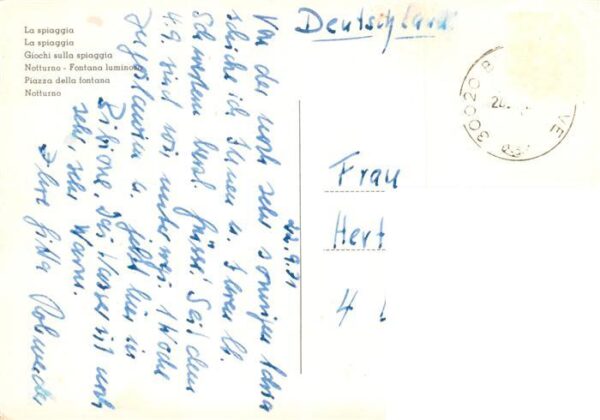 La spiaggia
La spiaggia
Giochi sulla spiaggia
Notturno - Fontana luminosa
Piazza della fontana
Notturno
Deutschland
30020 VE
22.9.71
Von der noch sehr sonnigen Adria
schicke ich Ihnen u. Ihren lb.
Schwestern herzl. Grüsse! Seit dem
4.9. sind wir unterwegs. 1 Woche
Jugoslawien u. jetzt hier in
Bibione. Das Wasser ist noch
sehr, sehr warm.
Ihre Gitta
Frau
Hert
4